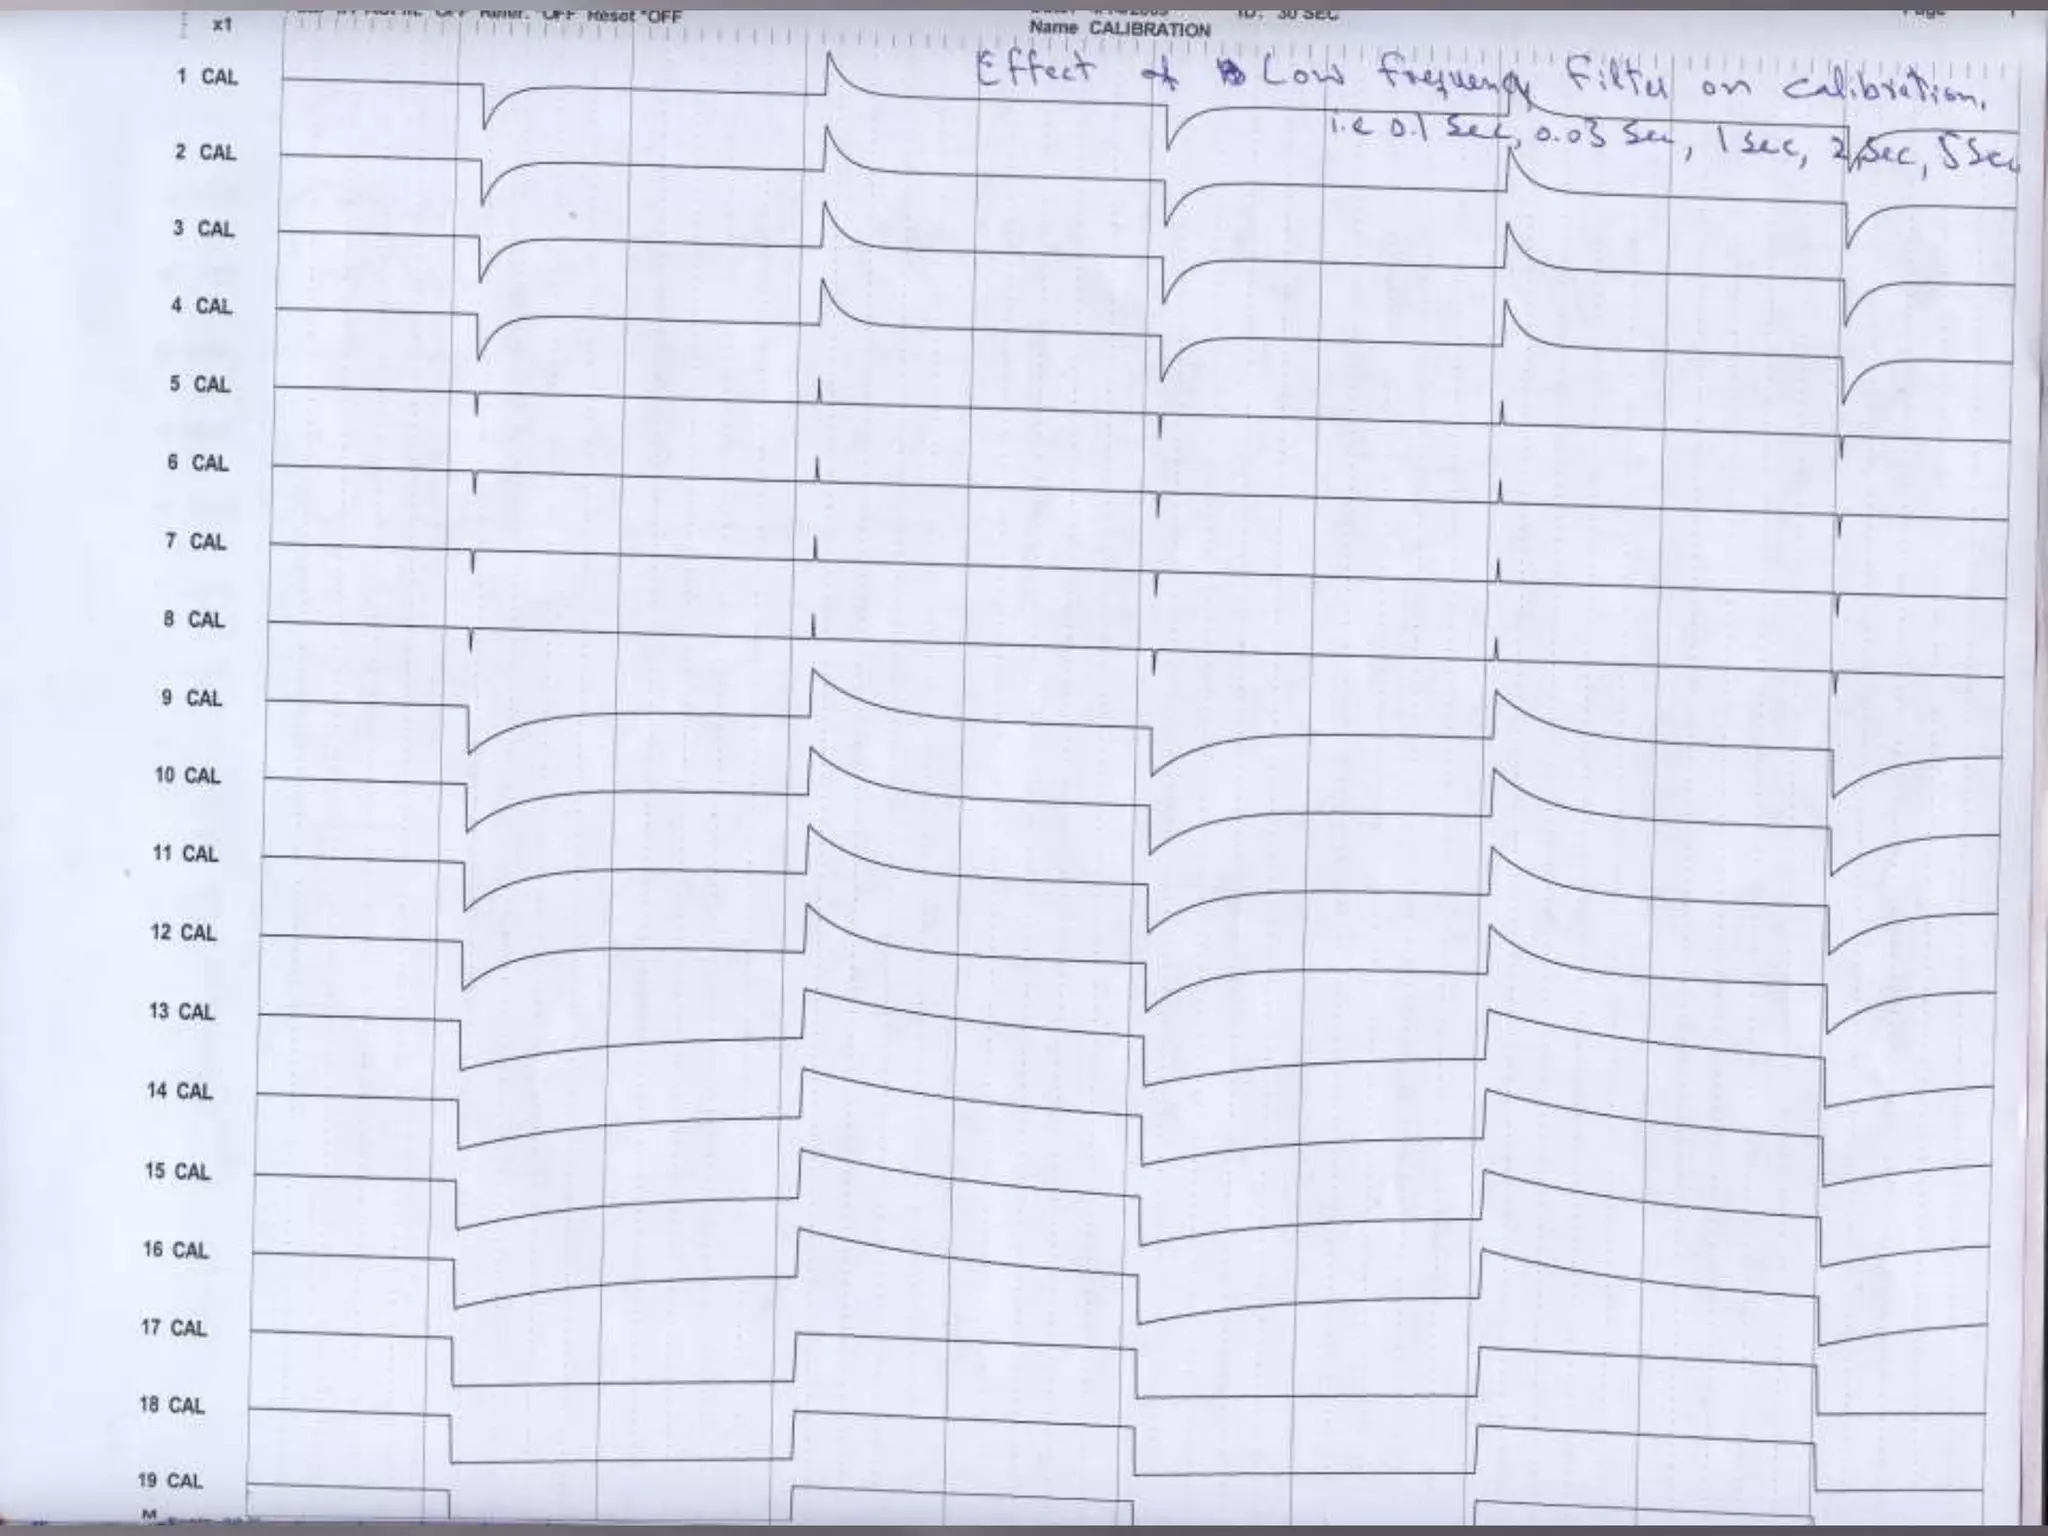 OFF Reset *OFF ID: 30 SEC Page 1
x1 Name CALIBRATION
1 CAL
Effect of Low frequency Filter on calibration.
i.e 0.1 Sec, 0.03 Sec, 1 Sec, 2 Sec, 5 Sec
2 CAL
3 CAL
4 CAL
5 CAL
6 CAL
7 CAL
8 CAL
9 CAL
10 CAL
11 CAL
12 CAL
13 CAL
14 CAL
15 CAL
16 CAL
17 CAL
18 CAL
19 CAL